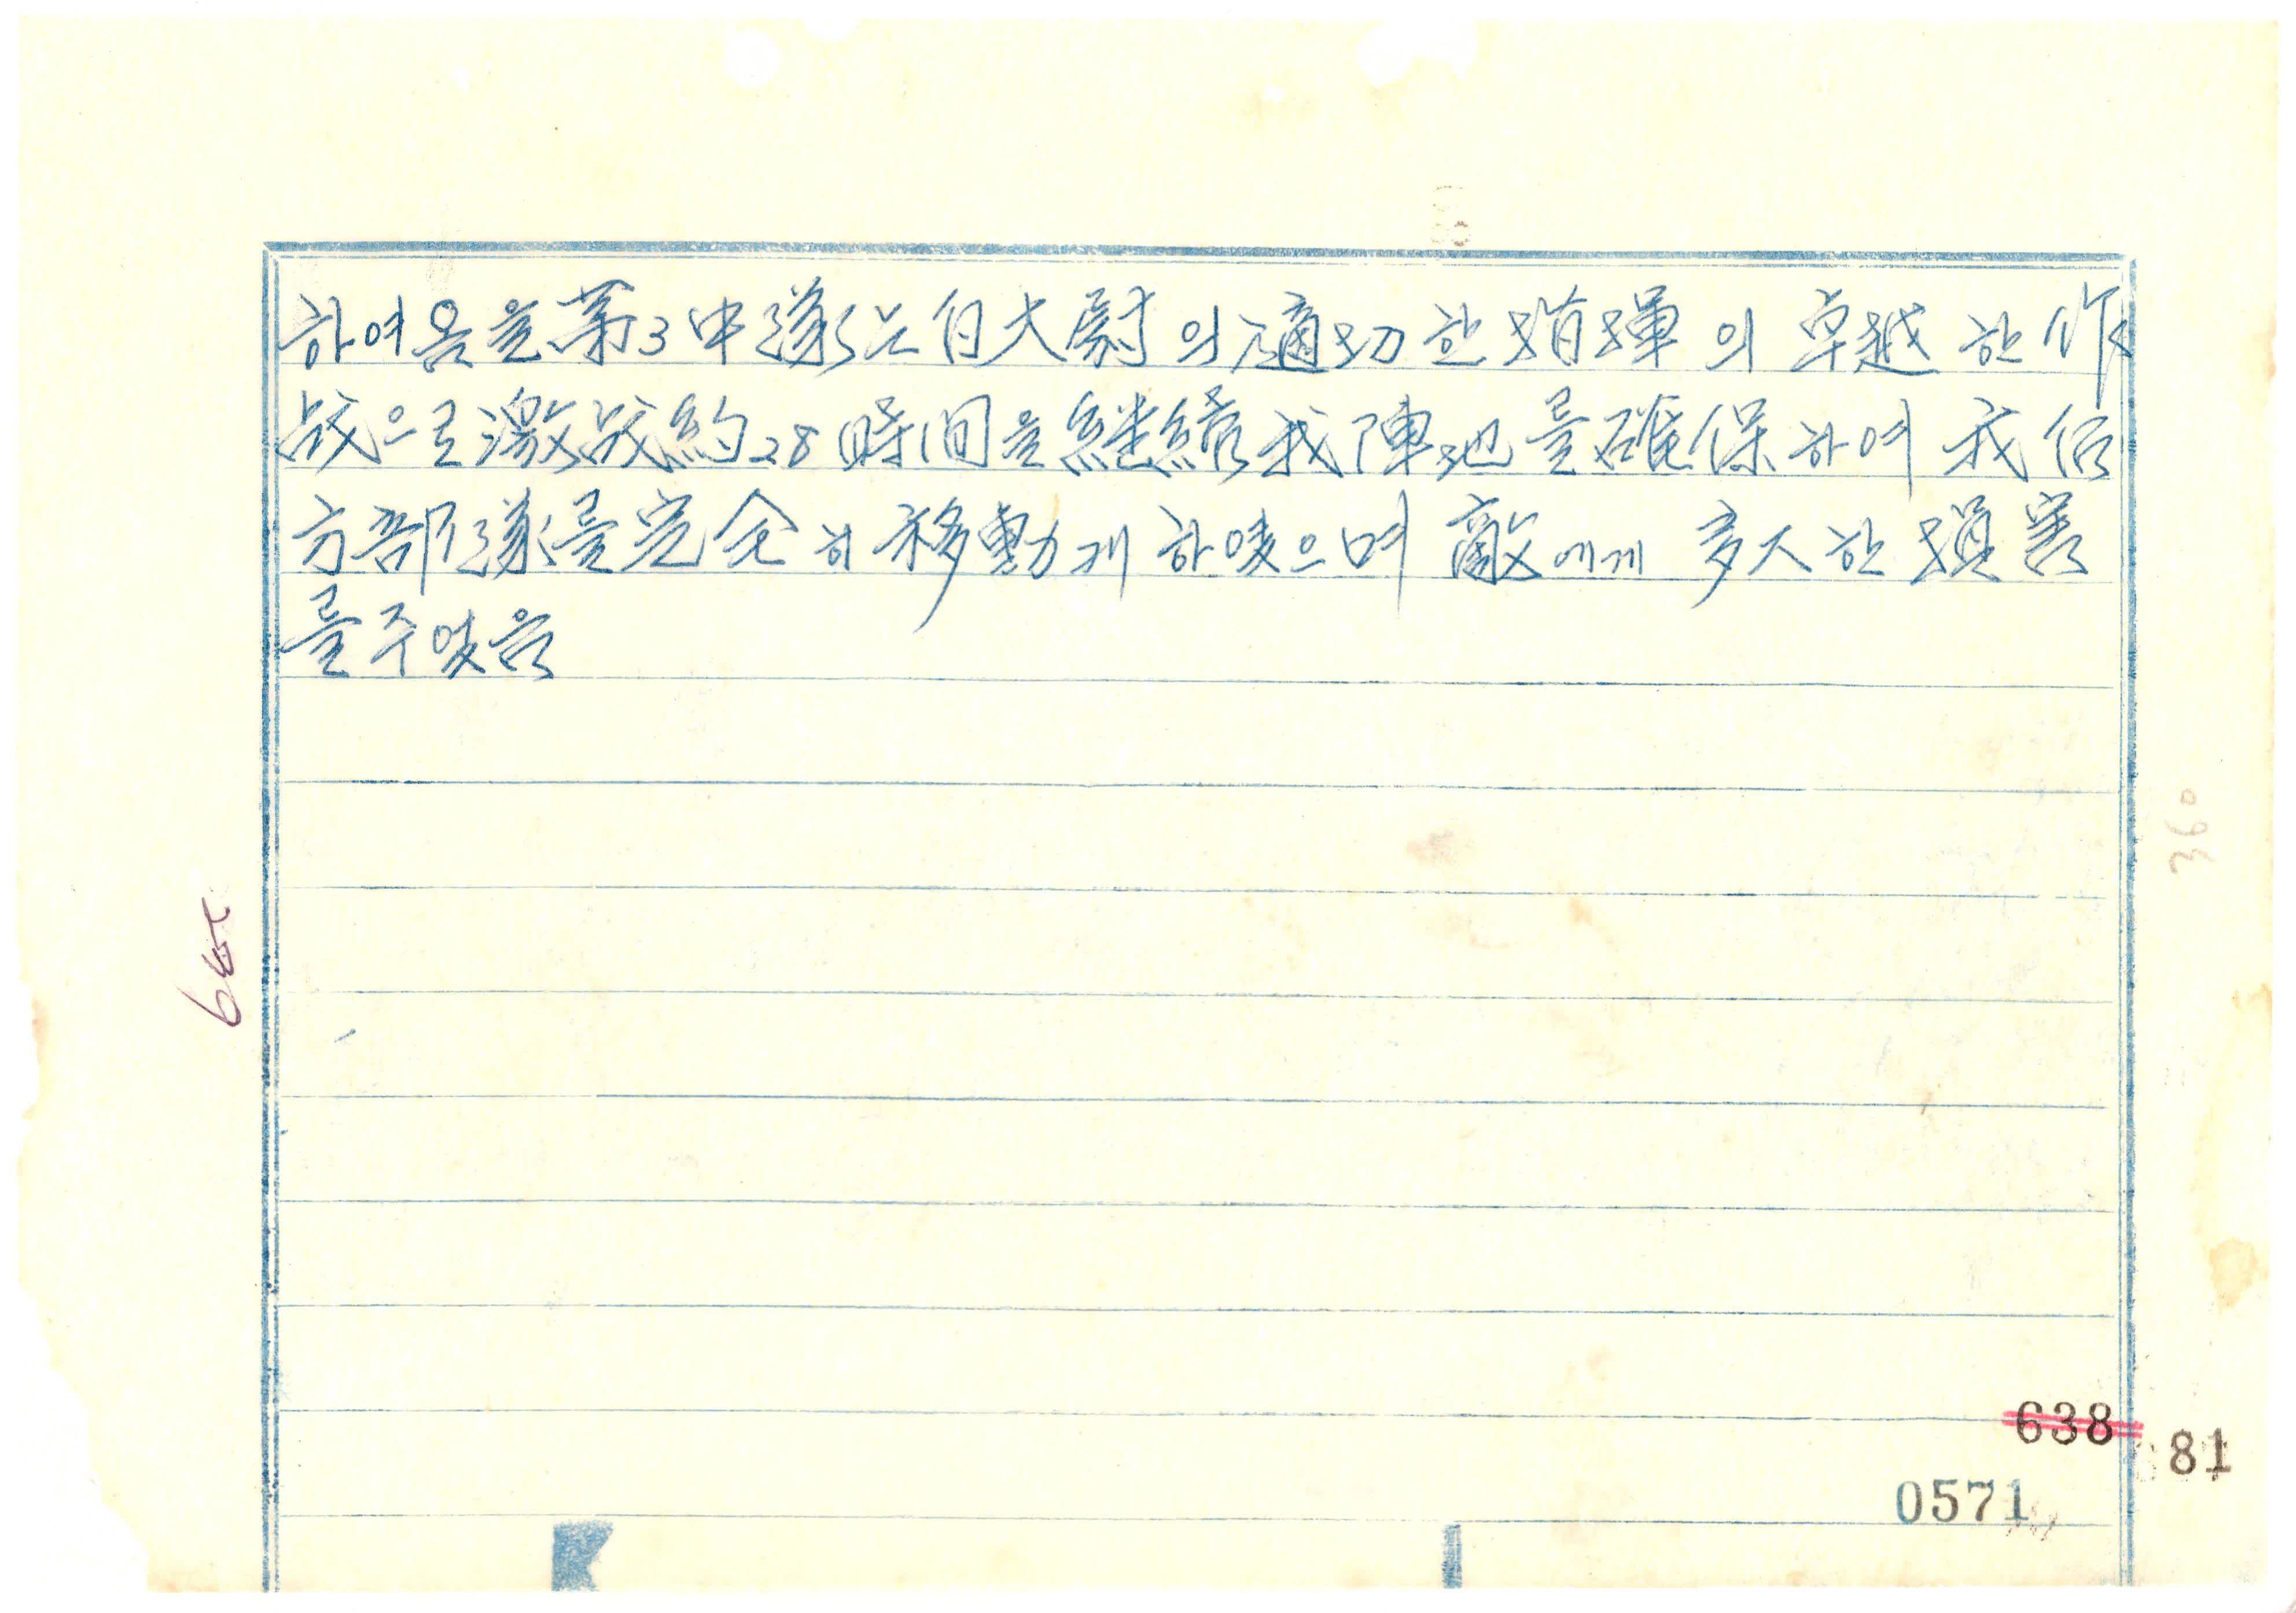 하여옴을 第3中隊는 白大尉의 適切한 指揮의 卓越한 作
战으로 激战約28時間을 継續 我陣地를 確保하여 我 后
方部隊를 完全히 移動게 하였으며 敵에게 多大한 損害
를 주었음
360
638
81
0571